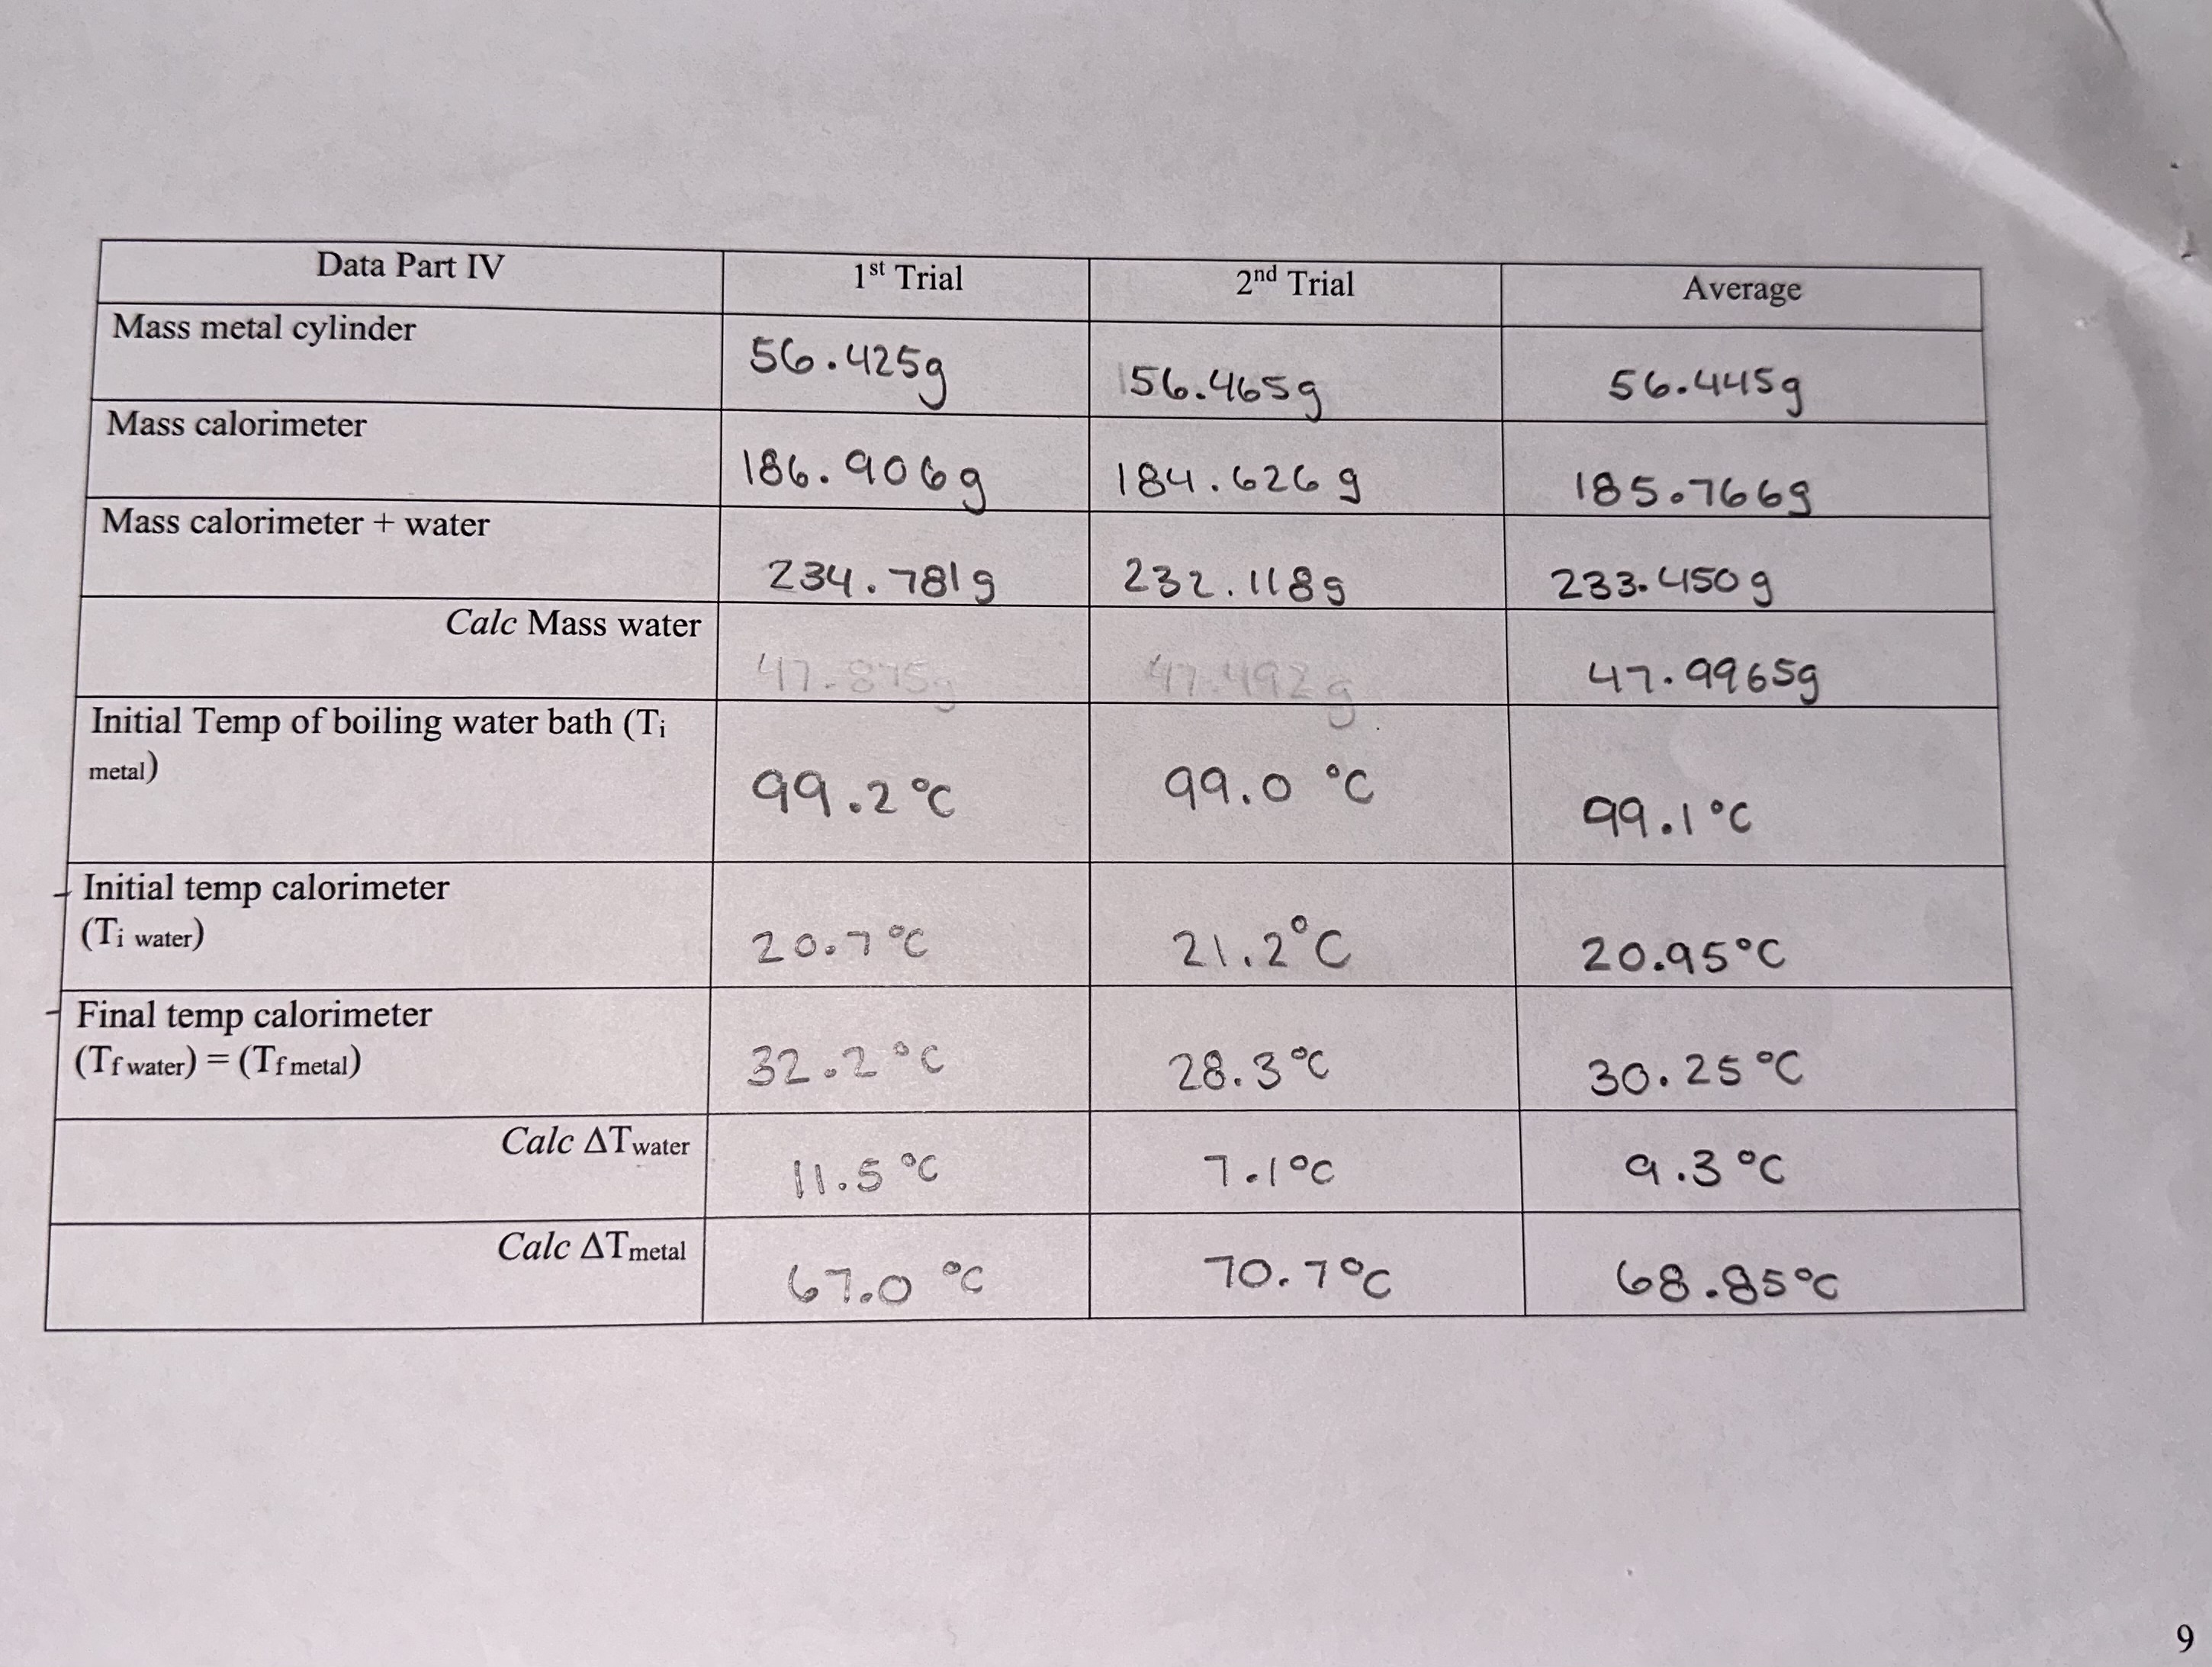 Data Part IV 1st Trial 2nd Trial Average
Mass metal cylinder 56.425g 56.465g 56.445g
Mass calorimeter 186.906g 184.626 g 185.766g
Mass calorimeter + water 234.781g 232.118g 233.450g
Calc Mass water 47.875g 47.492g 47.9965g
Initial Temp of boiling water bath (Ti
metal) 99.2°C 99.0 °C 99.1°C
Initial temp calorimeter
(Ti water) 20.7°C 21.2°C 20.95°C
Final temp calorimeter
(Tf water) = (Tf metal) 32.2°C 28.3°C 30.25°C
Calc ΔTwater 11.5°C 7.1°C 9.3°C
Calc ΔTmetal 67.0 °C 70.7°C 68.85°C
9